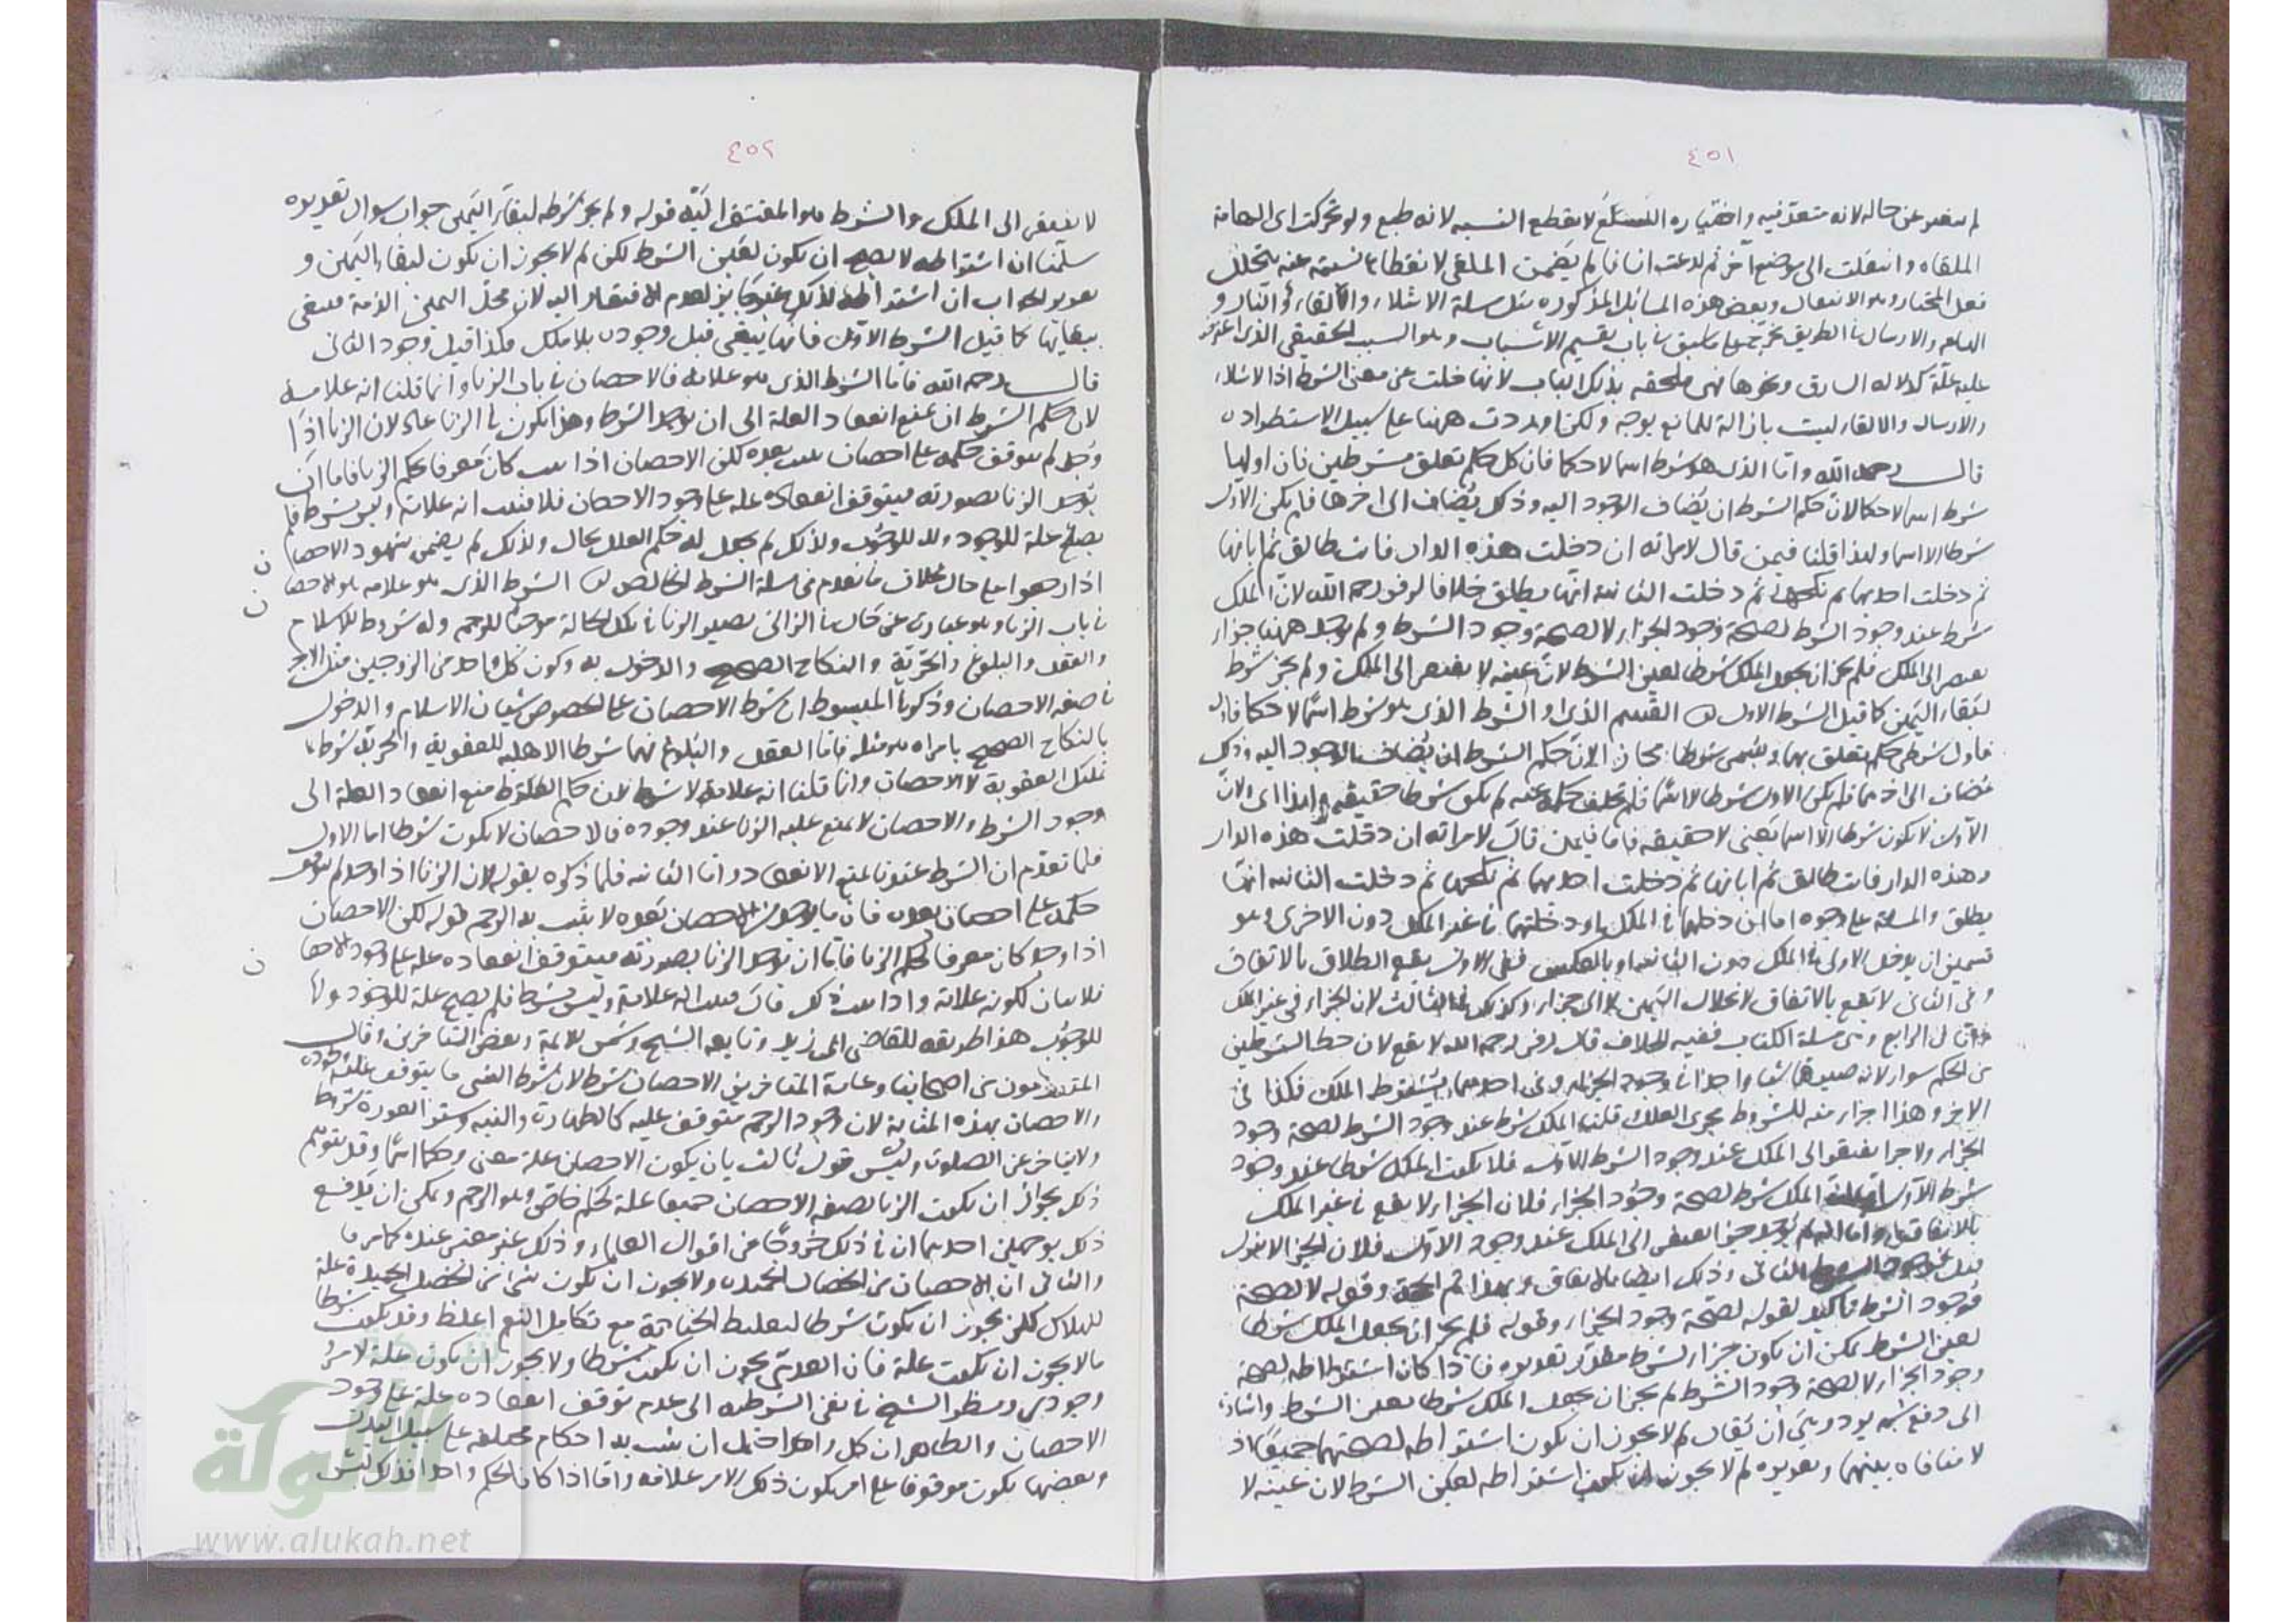 ٤٥١
لم يتغير عن حاله لانه متعد فيه واختياره اللسع لا يقطع النسبه لانه طبع ولو تحركت اى الهامة
الملقاه وانتقلت الى موضع آخر ثم لدغت انسانا لم يضمن الملقى لانقطاع نسبته عنه بتخلل
فعل المختار وهو الانتقال وبعض هذه المسائل المذكوره مثل مسلة الاشلاء والالقاء فى النار و
الهامه والارسال فى الطريق ما سبق فى باب تقسيم الاسباب وهو السبب الحقيقى الذى اعترض
عليه علّة كدلاله السارق ونحوها فهى ملحقه بذلك الباب لانها خلت عن معنى الشرط اذ الاشلاء
والارسال والالقاء ليست بازالة للمانع بوجه ولكن اوردت ههنا على سبيل الاستطراد
قال رحمه الله واما الذى هو شرط اسما لا حكما فان كل حكم تعلق بشرطين فان اولهما
شرط اسما لا حكما لان حكم الشرط ان يضاف الوجود اليه وذلك يضاف الى اخرها فلم يكن الاول
شرطا الا اسما ولهذا قلنا فيمن قال لامراته ان دخلت هذه الدار فانت طالق ثم ابانها
ثم دخلت احديهما ثم نكحها ثم دخلت الثانية انها تطلق خلافا لزفر رحمه الله لان الملك
شرط عند وجود الشرط لصحة وجود الجزاء لا لصحة وجود الشرط ولم يوجد ههنا جزاء
يفتقر الى الملك فلم يجز ان يجعل الملك شرطا لعين الشرط لان عينه لا يفتقر الى الملك ولم يجز شرط
لبقاء اليمين كما قبل الشرط الاول القسم الذى والشرط الذى هو شرط اسما لا حكما فاول
فاول شرطى حكم تعلق بهما ويسمى شرطا مجازا لان حكم الشرط ان يضاف الوجود اليه وذلك
مضاف الى اخرهما فلم يكن الاول شرطا الا اسما فلم تخلف حكمه عنه لم يكن شرطا حقيقه ولهذا اى ولان
الاول لا يكون شرطا الا اسما يعنى لا حقيقه قلنا فيمن قال لامراته ان دخلت هذه الدار
وهذه الدار فانت طالق ثم ابانها ثم دخلت احديهما ثم نكحها ثم دخلت الثانيه انها
تطلق والمسلة على وجوه اما ان دخلتهما فى الملك او دخلتهما فى غير الملك دون الاخرى وهو
قسمين ان يدخل الاولى فى الملك دون الثانيه او بالعكس ففى الاول يقع الطلاق بالاتفاق
وفى الثانى لا يقع بالاتفاق لانحلال اليمين لا الى جزاء وكذلك فى الثالث لان الجزاء فى غير الملك
واما فى الرابع وهى مسلة الكتاب ففيه الخلاف قال زفر رحمه الله لا يقع لان حظ الشرطين
من الحكم سواء لانه صيرهما شيا واحدا فى وجود الجزاء وفى احدهما يشترط الملك فكذا فى
الاخر وهذا اجراء منه للشروط مجرى العلل قلنا الملك شرط عند وجود الشرط لصحة وجود
الجزاء ولا جزا يفتقر الى الملك عند وجود الشرط الاول فلا يكون الملك شرطا عند وجود
شرط الاول الملك شرط لصحة وجود الجزاء فلان الجزاء لا يقع فى غير الملك
بالاتفاق واما انه لم يوجد جزا يفتقر الى الملك عند وجود الاول فلان الجزا لا ينزل
قبل وجود الشرط الثانى وذلك ايضا بالاتفاق وبهذا تم الحجة وقوله لا لصحة
وجود الشرط تاكيد لقوله لصحة وجود الجزاء وقوله فلم يجز ان يجعل الملك شرطا
لعين الشرط يمكن ان يكون جزاء لشرط مقدر تقديره فاذا كان اشتراطه لصحة
وجود الجزاء لا لصحة وجود الشرط لم يجز ان يجعل الملك شرطا لعين الشرط واشارة
الى دفع شبه يرد وهى ان يقال لم لا يجوز ان يكون اشتراطه لصحتهما جميعا اذ
لا منافاه بينهما وتقديره لم لا يجوز ان يكون اشتراطه لعين الشرط لان عينه لا
٤٥٢
لا يفتقر الى الملك والشرط هو المفتقر اليه قوله ولم يجز شرطه لبقاء اليمين جواب سوال تقديره
سلمنا ان اشتراطه لا يصح ان يكون لعين الشرط لكن لم لا يجوز ان يكون لبقاء اليمين و
تقرير الجواب ان اشتراطه لذلك غير جايز لعدم الافتقار اليه لان محل اليمين الذمة فيبقى
ببقائها كما قبل الشرط الاول فانها يبقى قبل وجوده بلا ملك فكذا قبل وجود الثانى
قال رحمه الله فاما الشرط الذى هو علامة فالاحصان فى باب الزنا وانما قلنا انه علامة
لان حكم الشرط ان يمنع انعقاد العلة الى ان يوجد الشرط وهذا يكون فى الزنا بحال لان الزنا اذا
وجد لم يتوقف حكمه على احصان يحدث بعده لكن الاحصان اذا ثبت كان معرفا لحكم الزنا فاما ان
يوجد الزنا بصورته فيتوقف انعقاده علة على وجود الاحصان فلا فثبت انه علامة وليس بشرط فلم
يصلح علة للوجود ولا للوجوب ولذلك لم يجعل له حكم العلل بحال ولذلك لم يضمن شهود الاحصا
ن
اذا رجعوا على حال بخلاف ما تقدم فى مسلة الشرط الخالص الشرط الذى هو علامه هو الاحصا
ن
فى باب الزنا وهو عبارة عن حال فى الزانى يصير الزنا فى تلك الحالة موجبا للرجم وله شروط الاسلام
والعقل والبلوغ والحرية والنكاح الصحيح والدخول به وكون كل واحد من الزوجين مثل الاخر
فى صفه الاحصان وذكر فى المبسوط ان شرط الاحصان على الخصوص شيان الاسلام والدخول
بالنكاح الصحيح بامراه هى مثله فاما العقل والبلوغ فهما شرطا الاهليه للعقوبة والحرية شرط
تكميل العقوبة لا الاحصان وانما قلنا انه علامة لا شرط لان حكم الشرط منع انعقاد العلة الى
وجود الشرط والاحصان لا يمنع عليه الزنا عند وجوده فالاحصان لا يكون شرطا اما الاول
فلما تقدم ان الشرط عندنا يمنع الانعقاد واما الثانيه فلما ذكره بقوله لان الزنا اذا وجد لم يتوقف
حكمه على احصان بعده فان ما يوجد من الاحصان بعده لا يثبت به الرجم قوله لكن الاحصان
اذا وجد كان معرفا لحكم الزنا فاما ان يوجد الزنا بصورته فيتوقف انعقاده علة على وجود الاحصا
ن
فلا بيان لكونه علامة واذا ثبت ذلك قال فثبت انه علامة وليس بشرط فلم يصح علة للوجود ولا
للوجوب هذا طريقه للقاضى ابى زيد وتابعه الشيخ وشمس الائمة وبعض المتاخرين وقال
المتقدمون من اصحابنا وعامة المتاخرين الاحصان شرط لان شرط الشى ما يتوقف عليه وجوده
والاحصان بهذه المثابة لان وجود الرجم متوقف عليه كالطهارة والنيه وستر العورة شروط
ولا يتاخر عن الصلوة وليس قول ثالث بان يكون الاحصان علة معنى وحكما اسما وقد يتوهم
ذلك بجواز ان يكون الزنا بصفه الاحصان جميعا علة لحكم خاص وهو الرجم ويمكن ان يدفع
ذلك بوجهين احدهما ان فى ذلك خروجا عن اقوال العلماء وذلك غير معتبر عنده كما مر
والثانى ان الاحصان من الخصال الحميده ولا يجوز ان يكون شى من الخصال الحميدة علة
للهلاك لكن يجوز ان يكون شرطا لتغليظ الجناية مع تكامل النعم اغلظ وقد يكون شرطا
ما لا يجوز ان يكون علة فان العدمى يجوز ان يكون شرطا ولا يجوز ان يكون علة لامر
وجودى ومنظر الشيخ فى نفى الشرطيه الى عدم توقف انعقاده علة على وجود
الاحصان والظاهر ان كل واحد احتمل ان يثبت به احكام مختلفه على سبيل البدل
وبعضها يكون موقوفا على امر يكون ذلك الامر علامه واما اذا كان الحكم واحدا فذلك ليس
الألوكة
www.alukah.net